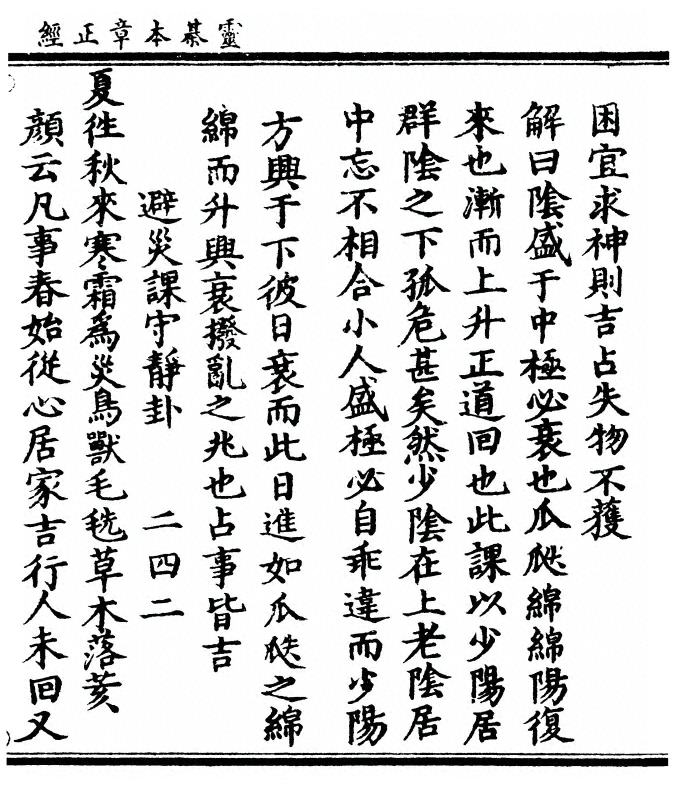 靈棊本章正經
困宜求神則吉占失物不獲
解曰陰盛于中極必衰也瓜瓞綿綿陽復
來也漸而上升正道回也此課以少陽居
群陰之下孤危甚矣然少陰在上老陰居
中忘不相合小人盛極必自乖違而少陽
方興于下彼日衰而此日進如瓜瓞之綿
綿而升興衰撥亂之兆也占事皆吉
避災課守靜卦 二四二
夏徃秋來寒霜為災鳥獸毛毨草木落荄
顏云凡事春始從心居家吉行人未回又